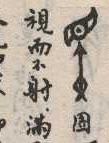 圖
視而不射滿